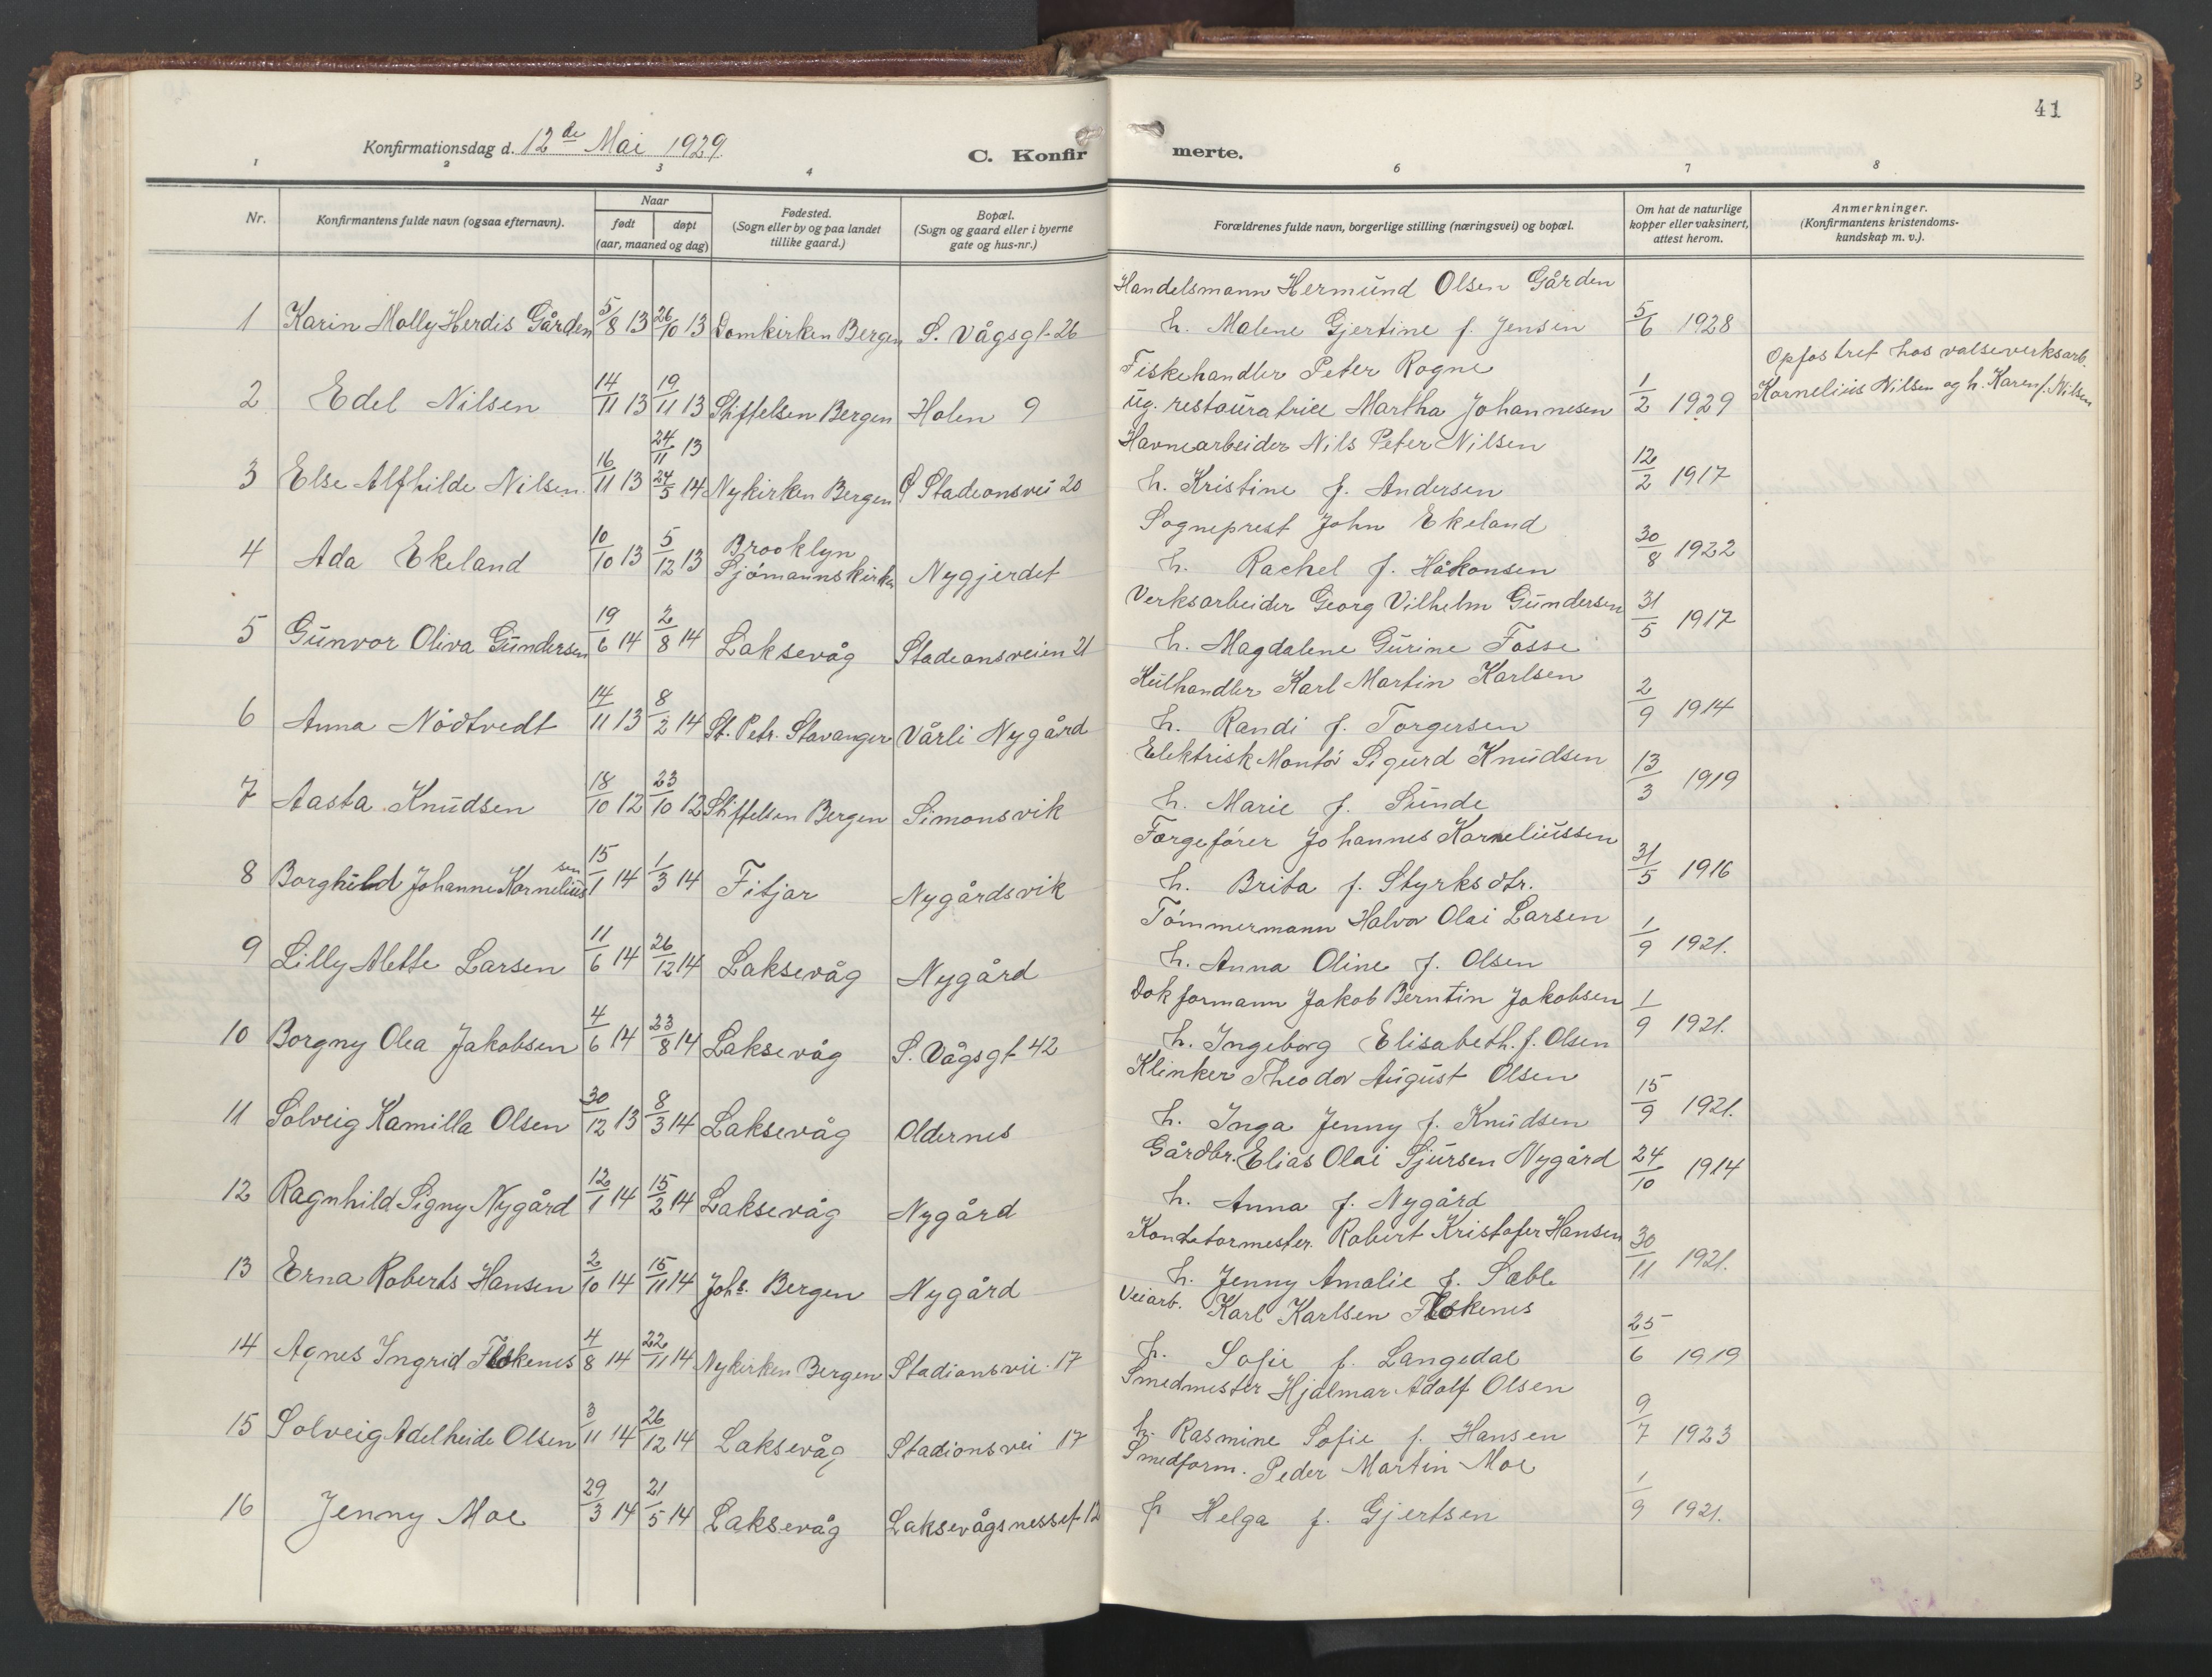 41
Konfirmationsdag d. 12de Mai 1929.
C. Konfirmerte.
1 2 3 4 6 7 8
Nr. Konfirmantens fulde navn (ogsaa efternavn). Naar født døpt (aar, maaned og dag) Fødested. (Sogn eller by og paa landet tillike gaard.) Bopæl. (Sogn og gaard eller i byerne gate og hus-nr.) Forældrenes fulde navn, borgerlige stilling (næringsvei) og bopæl. Om hat de naturlige kopper eller vaksinert, attest herom. Anmerkninger. (Konfirmantens kristendomskundskap m. v.).
1 Karin Molly Herdis Gården 5/8 13 26/10 13 Domkirken Bergen S. Vågsgt. 26 Handelsmann Hermund Olsen Gården
h. Malene Gjertine f. Jensen 5/6 1928
2 Edel Nilsen 14/11 13 19/11 13 Stiftelsen Bergen Holen 9 Fiskehandler Peter Rogne
ug. restauratrice Martha Johannesen 1/2 1929 Opfostret hos valseverksarb.
Kornelius Nilsen og h. Karen f. Nilsen
3 Else Alfhilde Nilsen 16/11 13 24/11 13 24/5 14 Nykirken Bergen Stadeonsvei 20 Havnearbeider Nils Peter Nilsen
h. Kristine f. Andersen 12/2 1917
4 Ada Ekeland 10/10 13 5/12 13 Brooklyn Sjömannskirken Nygjerdet Sogneprest John Ekeland
h. Rachel f. Håkonsen 30/8 1922
5 Gunvor Oliva Gundersen 19/6 14 2/8 14 Laksevåg Stadeonsveien 21 Verksarbeider Georg Vilhelm Gundersen
h. Magdalene Gurine Fosse 31/5 1917
6 Anna Nödtvedt 14/11 13 8/2 14 St. Petr. Stavanger Vårli Nygård Kulhandler Karl Martin Karlsen
h. Randi f. Torgersen 2/9 1914
7 Aasta Knudsen 18/10 12 23/10 12 Stiftelsen Bergen Simonsvik Elektrisk Montör Sigurd Knudsen
h. Marie f. Sunde 13/3 1919
8 Borghild Johanne Korneliussen 15/1 14 1/3 14 Fitjar Nygårdsvik Førgeförer Johannes Korneliussen
h. Brita f. Styrksdtr. 31/5 1916
9 Lilly Mette Larsen 11/6 14 26/12 14 Laksevåg Nygård Tömmermann Halvor Olai Larsen
h. Anna Oline f. Olsen 1/9 1921.
10 Borgny Olea Jakobsen 4/6 14 23/8 14 Laksevåg S. Vågsgt 42 Dokformann Jakob Berntin Jakobsen
h. Ingeborg Elisabeth. f. Olsen 1/9 1921.
11 Solveig Kamilla Olsen 30/12 13 8/3 14 Laksevåg Oldernes Klinker Theodor August Olsen
h. Inga Jenny f. Knudsen 15/9 1921.
12 Ragnhild Signy Nygård 12/1 14 15/2 14 Laksevåg Nygård Gårdbr. Elias Olai Sjursen Nygård
h. Anna f. Nygård 24/10 1914
13 Erna Roberts Hansen 2/10 14 15/11 14 Johs. Bergen Nygård Kondetormester. Robert Kristofer Hansen
h. Jenny Amalie f. Sæble 30/11 1921.
14 Agnes Ingrid Flokenes 4/8 14 22/11 14 Nykirken Bergen Stadionsvei. 17 Veiarb. Karl Karlsen Flokenes
h. Sofie f. Langedal 25/6 1919
15 Solveig Adelheide Olsen 3/11 14 26/12 14 Laksevåg Stadionsvei 17 Smedmester Hjalmar Adolf Olsen
h. Rasmine Sofie f. Hansen 9/7 1923
16 Jenny Moe 29/3 14 21/5 14 Laksevåg Laksevågsnesset 12 Smedform. Peder Martin Moe
h Helga f. Gjertsen 1/9 1921.